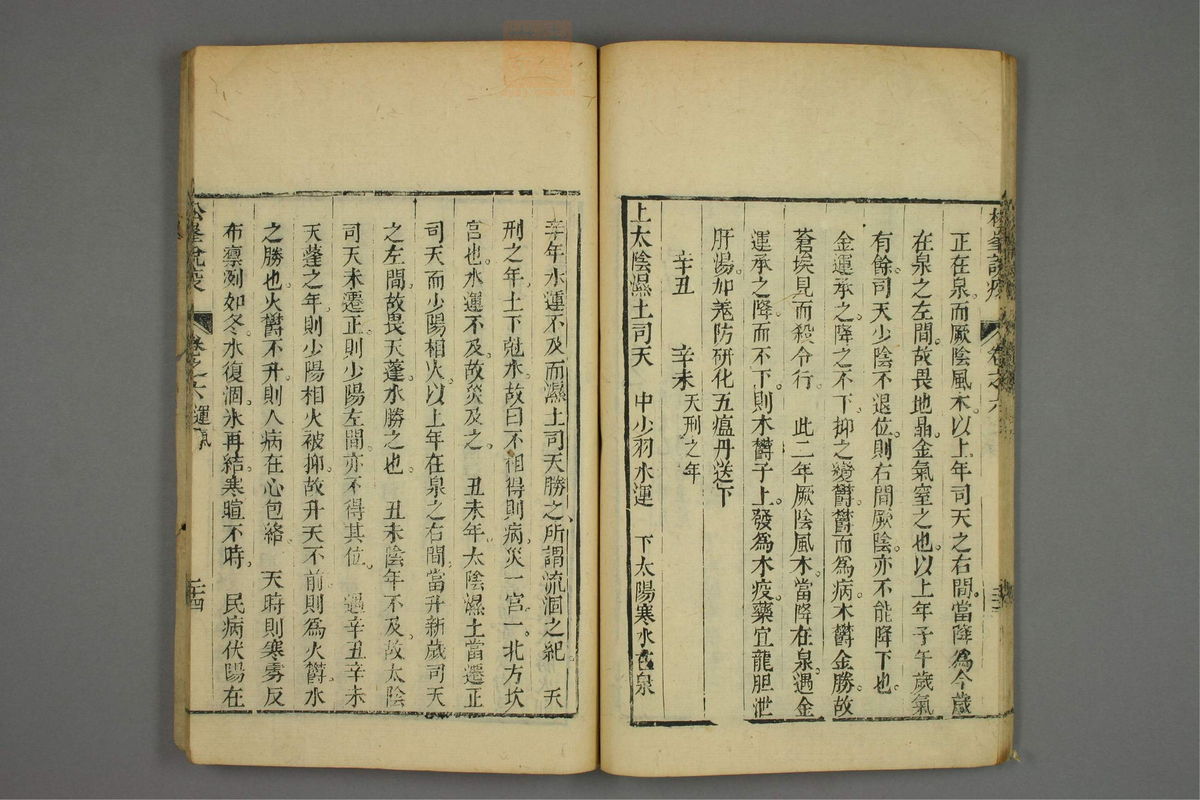 正在泉。而厥陰風木。以上年司天之右間。當降爲今歲
在泉之左間。故畏地晶金氣窒之也。以上年子午歲氣
有餘。司天少陰不退位。則右間厥陰。亦不能降下也。
金運承之。降之不下。抑之變鬱。鬱而爲病。木鬱金勝。故
蒼埃見而殺令行。 此二年厥陰風木。當降在泉。遇金
運承之。降而不下。則木鬱子上。發爲木疫。藥宜龍胆泄
肝湯。加羗防研化五瘟丹送下
辛丑 辛未 天刑之年
上太陰濕土司天 中少羽水運 下太陽寒水在泉
辛年水運不及。而濕土司天勝之。所謂流涸之紀 天
刑之年。土下尅水。故曰不相得則病。災一宮。一。北方坎
宮也。水運不及。故災及之。 丑未年。太陰濕土當遷正
司天。而少陽相火。以上年在泉之右間。當升新歲司天
之左間。故畏天蓬。水勝之也。 丑未陰年不及。故太陰
司天未遷正。則少陽左間。亦不得其位。 遇辛丑辛未
天蓬之年。則少陽相火被抑。故升天不前。則爲火鬱。水
之勝也。火鬱不升。則人病在心包絡。 天時則寒雰反
布。凛冽如冬。水復涸。氷再結。寒暄不時。 民病伏陽在
卷之六 運氣
二十四